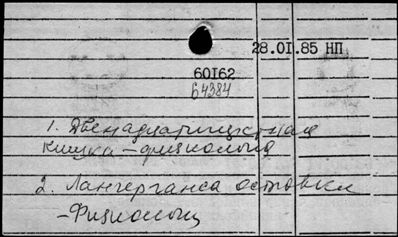 28.01.85 НП
60162
64384
1. Двенадцатиперстная
кишка – физиология
2. Лангерганса островки
– Физиолог.